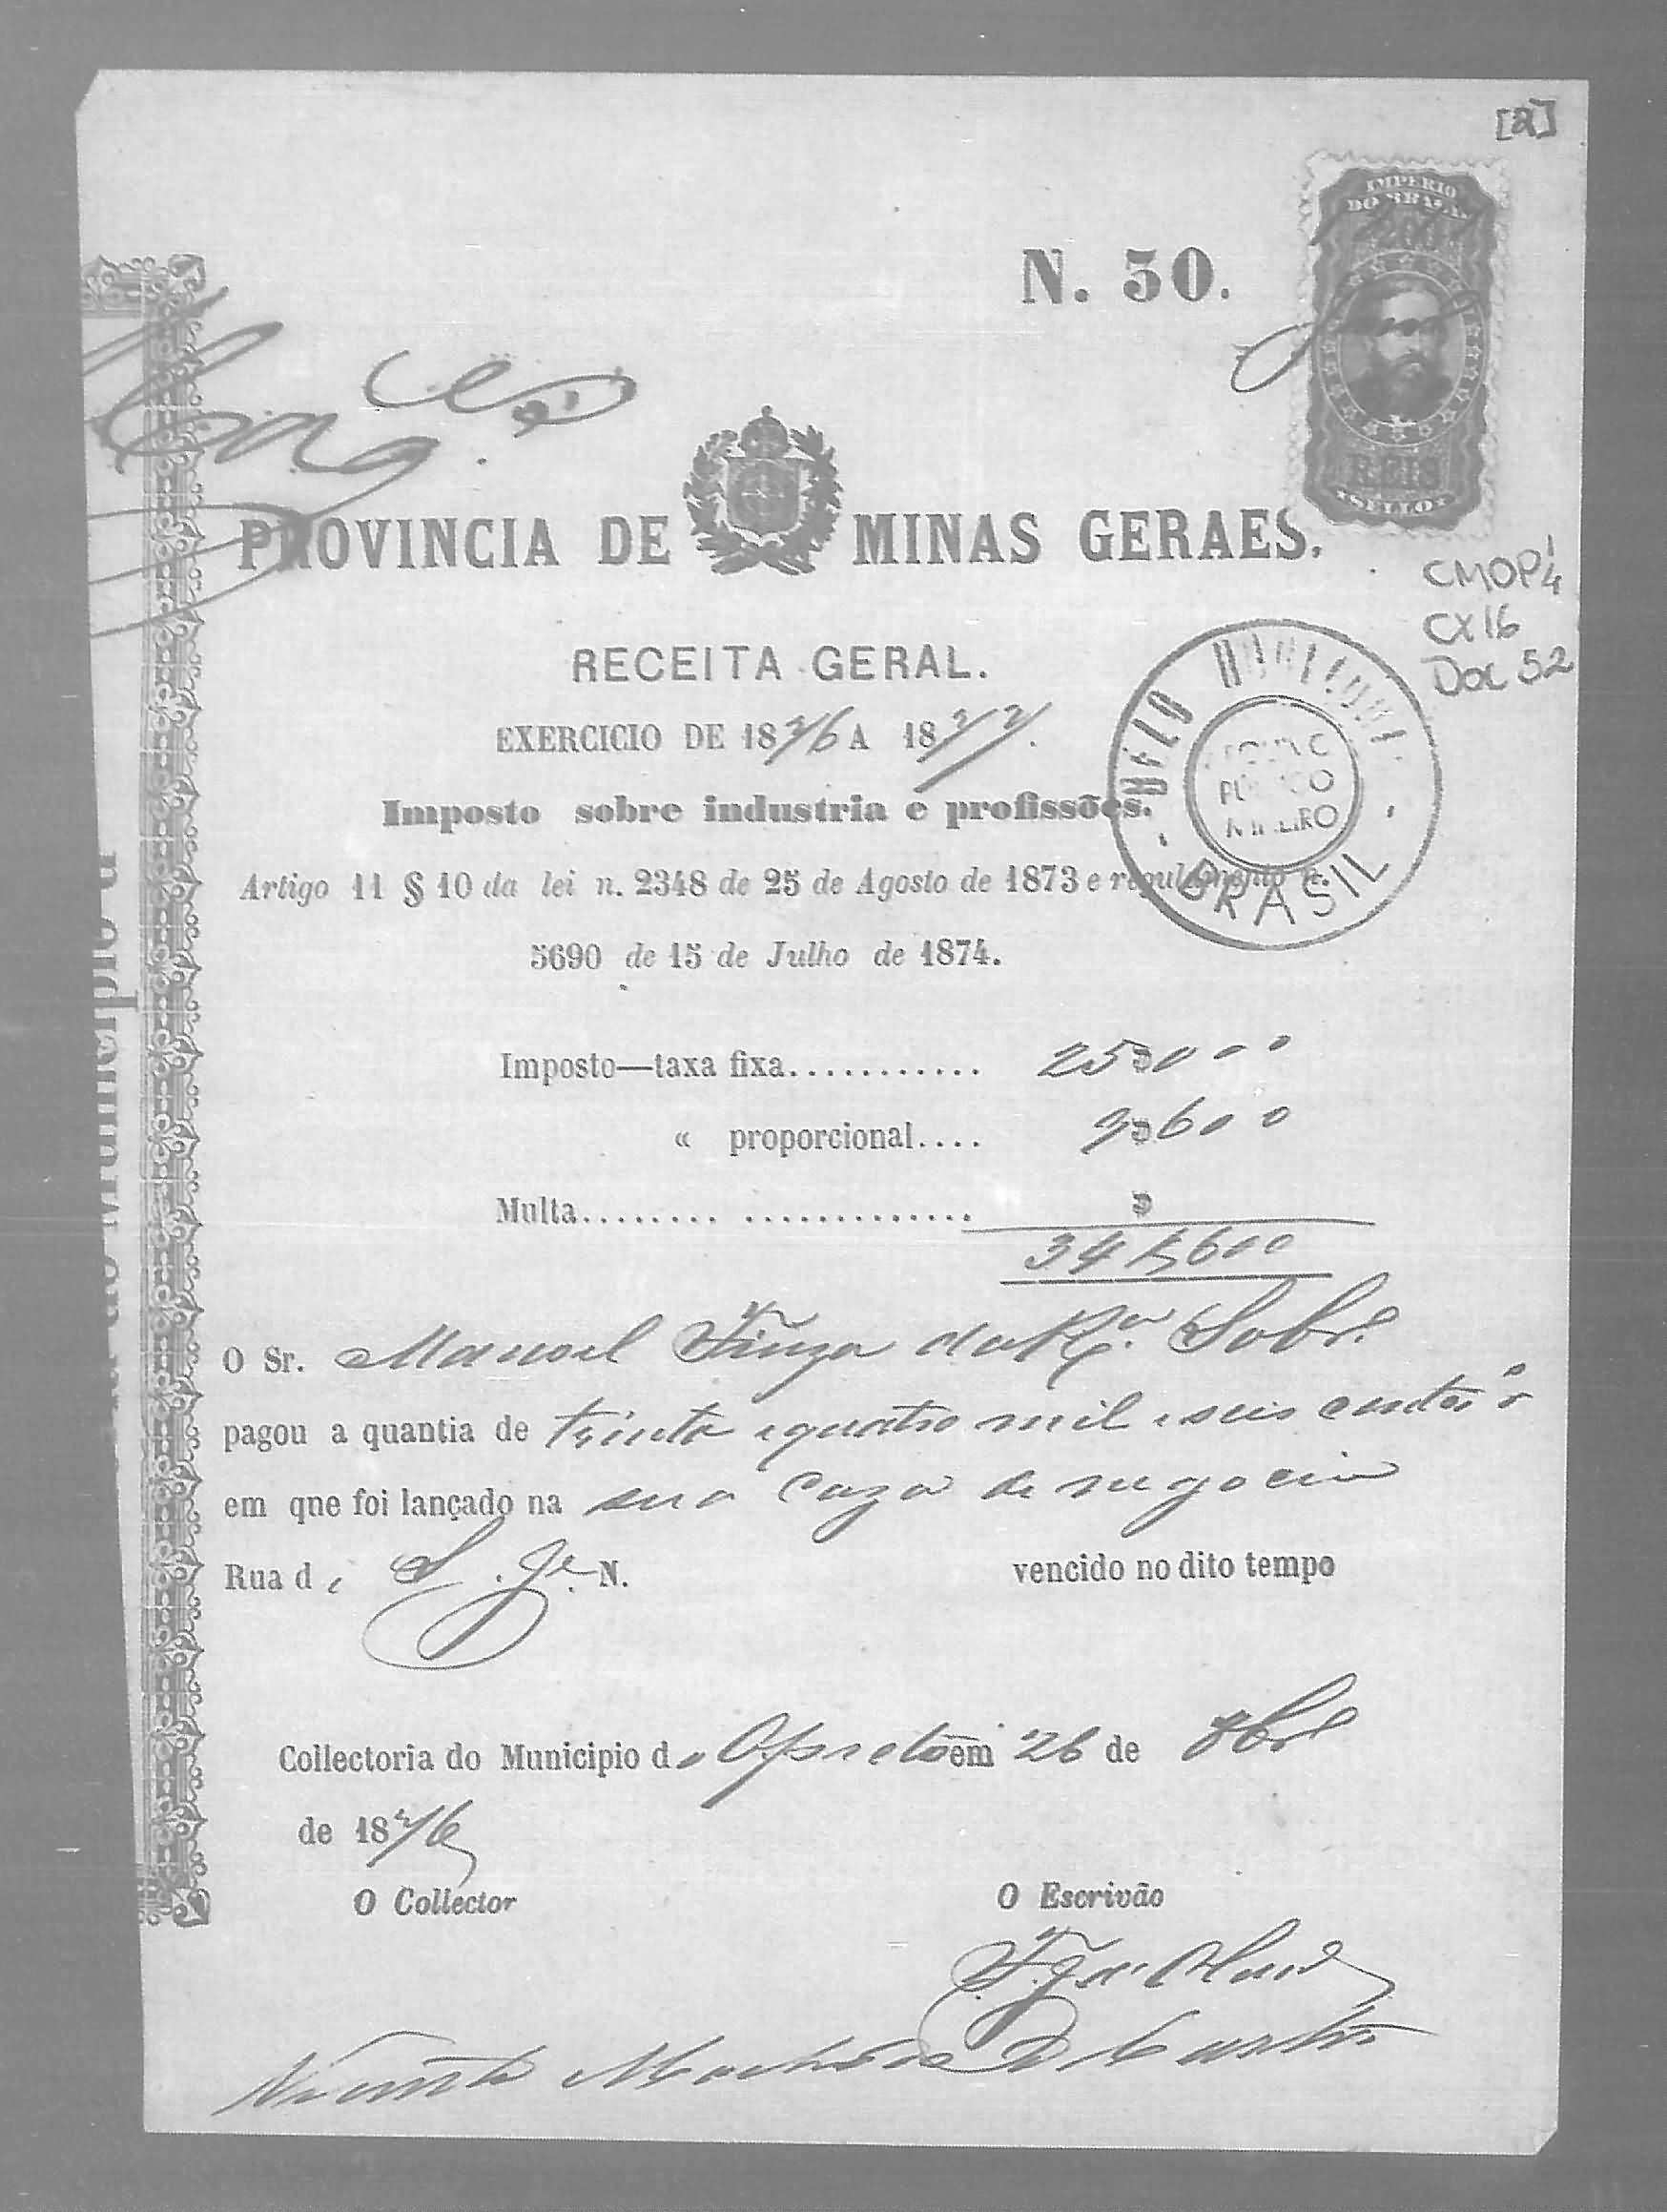 [2]
IMPERIO
DO BRASIL
200
REIS
SELLO
N. 50.
PROVINCIA DE MINAS GERAES.
CMOP 1/4
CX 16
Doc 52
RECEITA GERAL.
EXERCICIO DE 1876 A 1877.
BELO HORIZONTE
ARQUIVO
PUBLICO
MINEIRO
BRASIL
Imposto sobre industria e profissões.
Artigo 11 § 10 da lei n. 2348 de 25 de Agosto de 1873 e regulamento n.
5690 de 15 de Julho de 1874.
Imposto—taxa fixa............ 25$000
« proporcional.... 9$600
Multa......... ............. $
34$600
O Sr. Manoel Fiuza da Rª. Sobrº
pagou a quantia de trinta e quatro mil e seis centos rs
em que foi lançado na sua caza de negocio
Rua de S. Jé. N. vencido no dito tempo
Collectoria do Municipio do O. preto em 26 de 8brº
de 1876
O Collector O Escrivão
Vicente Machado de Castro
do Municipio d